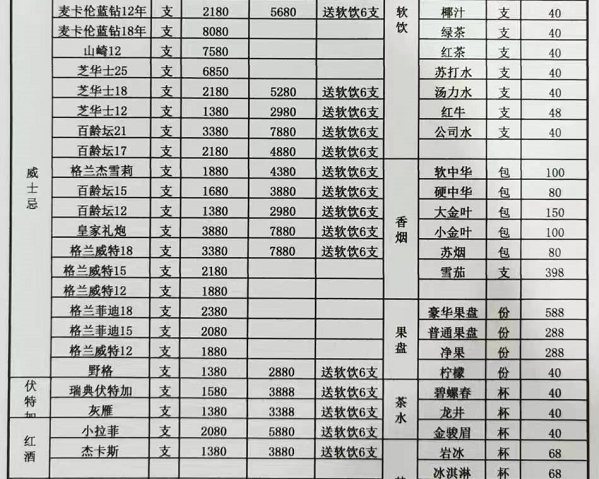 麦卡伦蓝钻12年 支 2180 5680 送软饮6支
麦卡伦蓝钻18年 支 8080
山崎12 支 7580
芝华士25 支 6850
芝华士18 支 2180 5280 送软饮6支
芝华士12 支 1380 2980 送软饮6支
百龄坛21 支 3380 7880 送软饮6支
百龄坛17 支 2180 4880 送软饮6支
威士忌
格兰杰雪莉 支 1880 4380 送软饮6支
百龄坛15 支 1680 3880 送软饮6支
百龄坛12 支 1380 2980 送软饮6支
皇家礼炮 支 3880 7880 送软饮6支
格兰威特18 支 3380 7880 送软饮6支
格兰威特15 支 2180
格兰威特12 支 1880
格兰菲迪18 支 2380
格兰菲迪15 支 2080
格兰威特12 支 1880
野格 支 1380 2880 送软饮6支
伏特加
瑞典伏特加 支 1580 3888 送软饮6支
灰雁 支 1380 3388 送软饮6支
红酒
小拉菲 支 2080 5880 送软饮6支
杰卡斯 支 1380 3880 送软饮6支
软饮
椰汁 支 40
绿茶 支 40
红茶 支 40
苏打水 支 40
汤力水 支 40
红牛 支 48
公司水 支 40
香烟
软中华 包 100
硬中华 包 80
大金叶 包 150
小金叶 包 100
苏烟 包 80
雪茄 支 398
果盘
豪华果盘 份 588
普通果盘 份 288
净果 份 288
柠檬 份 40
茶水
碧螺春 杯 40
龙井 杯 40
金骏眉 杯 40
岩冰 杯 68
冰淇淋 杯 68